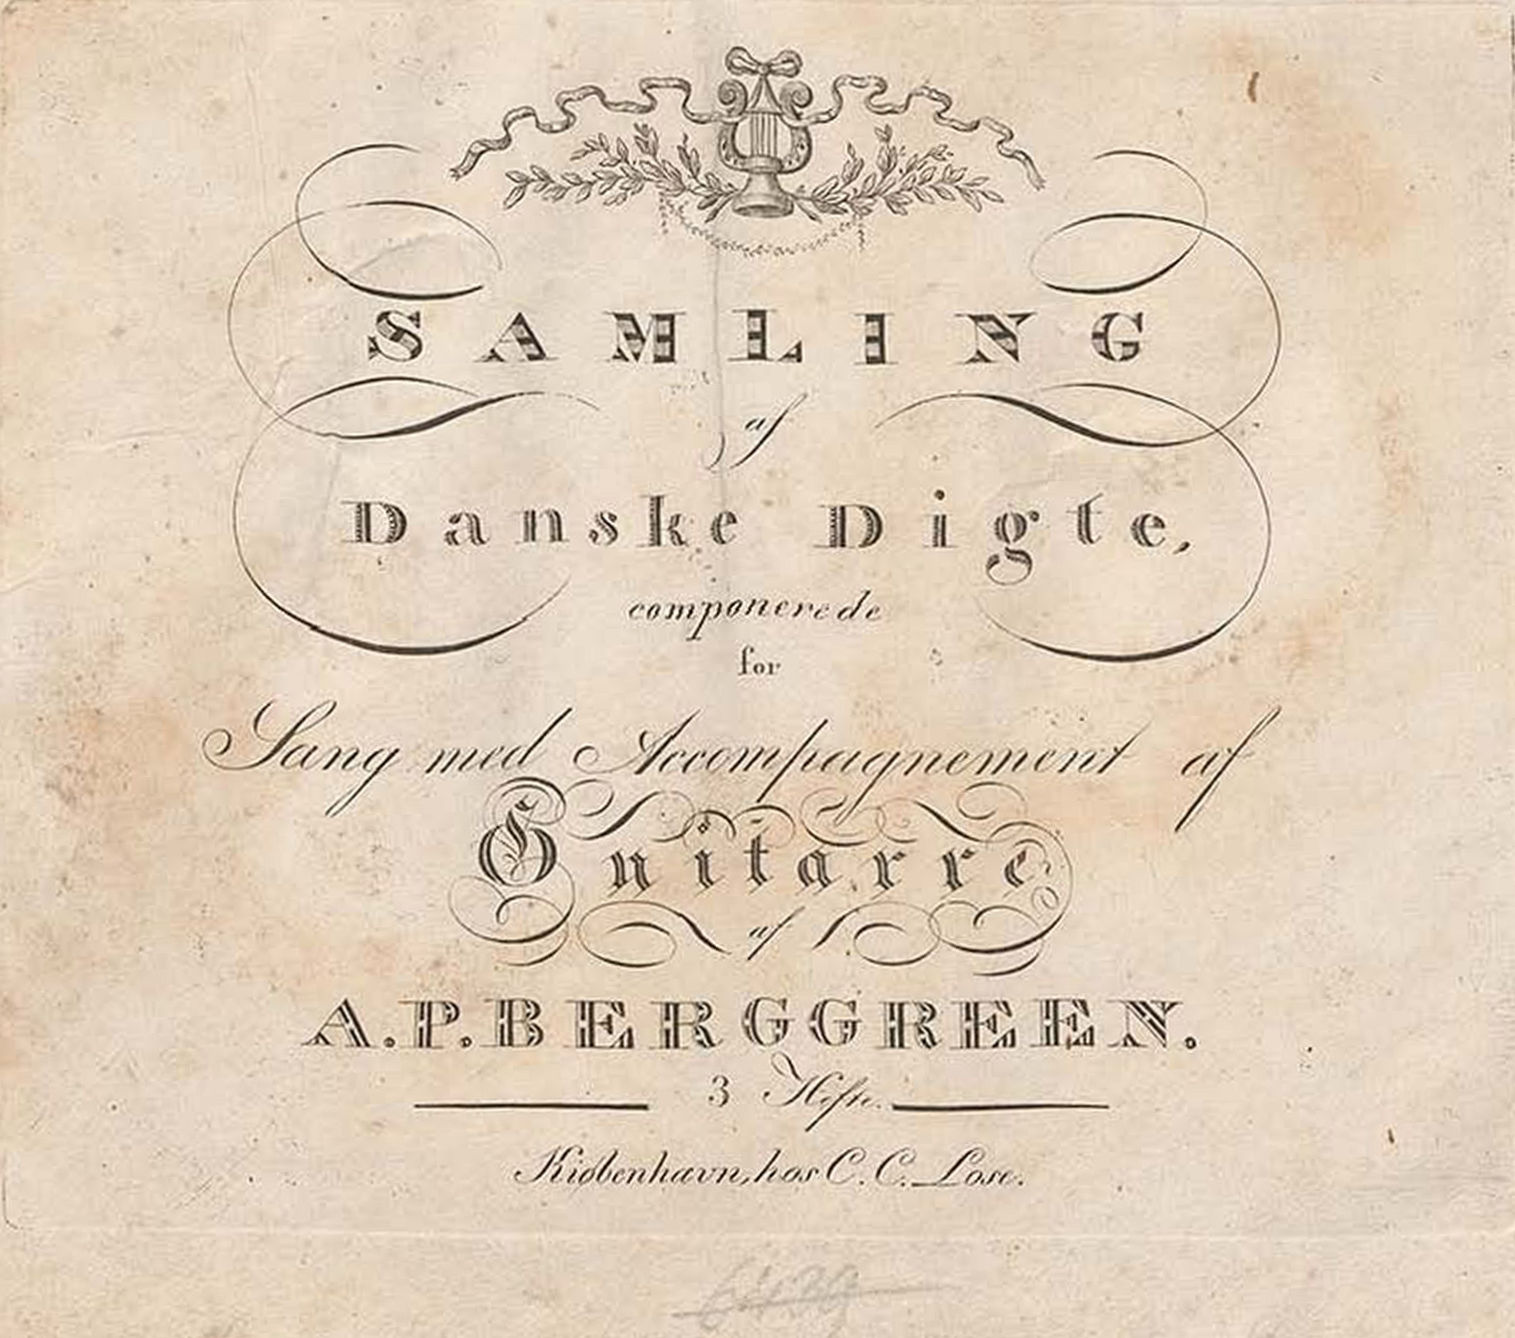 SAMLING
af
Danske Digte,
componerede
for
Sang med Accompagnement af
Guitarre
af
A.P. BERGGREEN.
3 Hefte.
Kiøbenhavn, hos C. C. Lose.